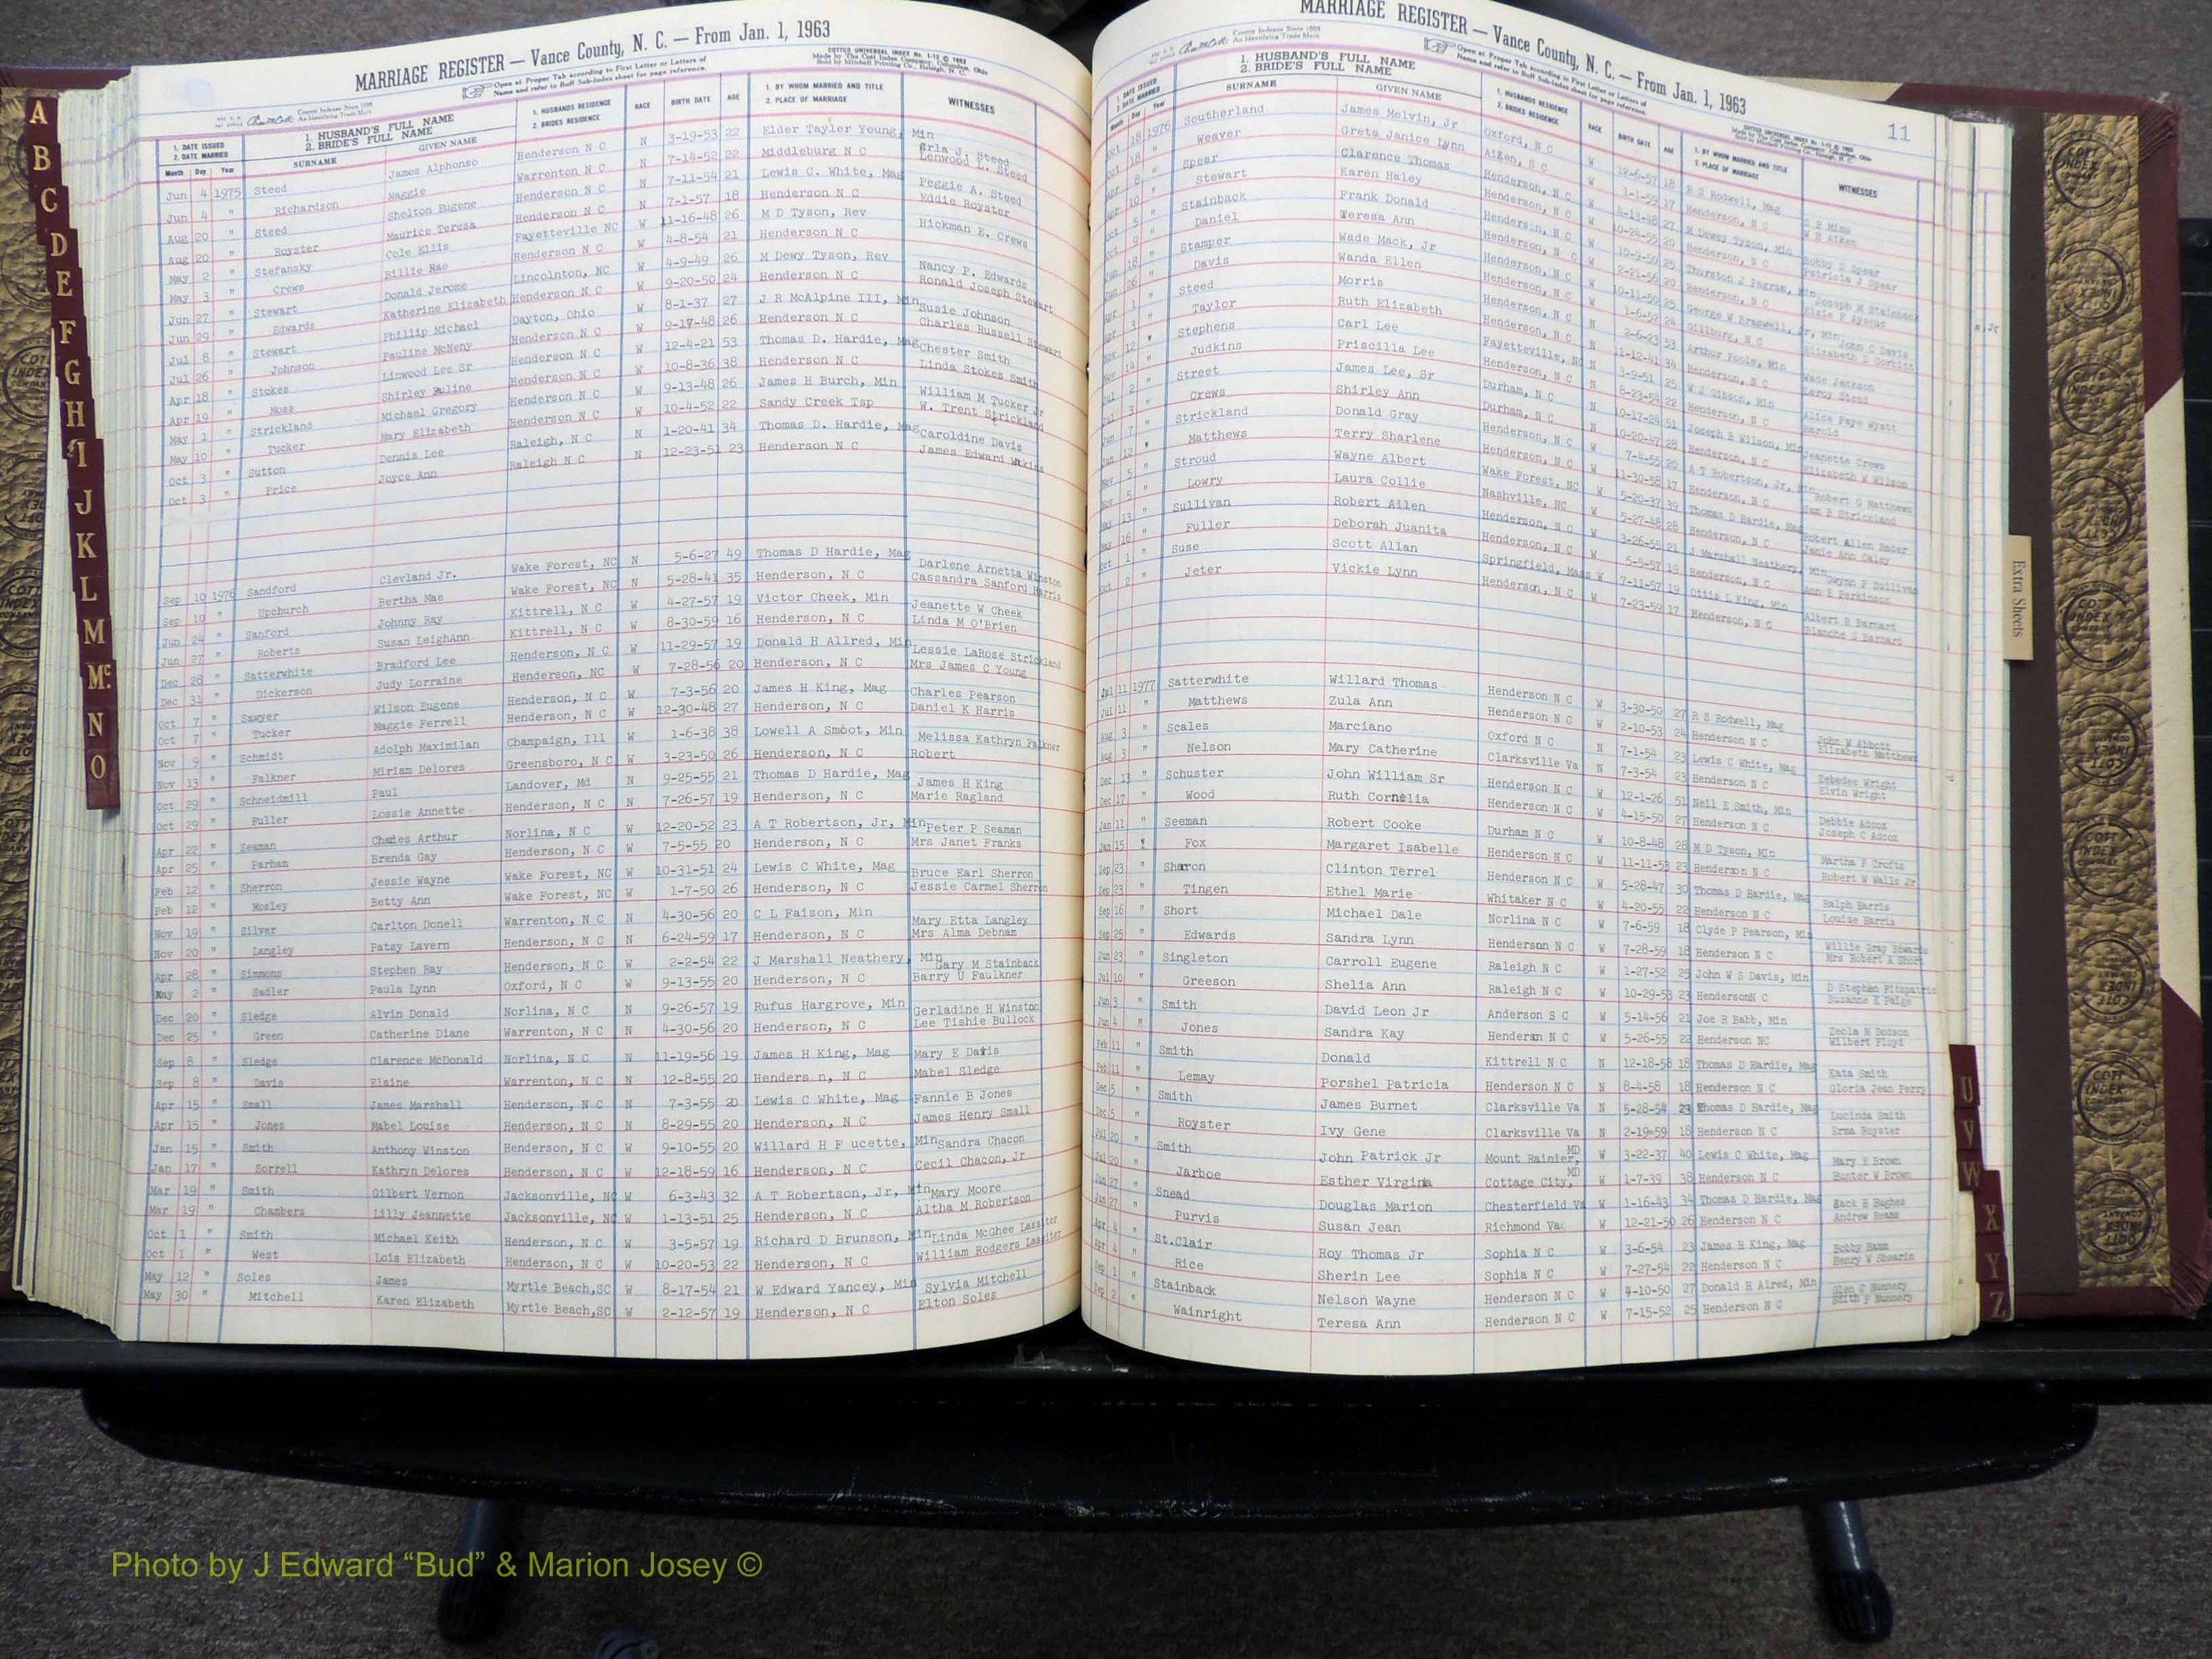 MARRIAGE REGISTER — Vance County, N. C. — From Jan. 1, 1963
Open at Proper Tab according to First Letter or Letters of
Name and refer to Buff Sub-Index sheet for page reference.
COTTCO UNIVERSAL INDEX
Made by The Cott Index Company, Columbus, Ohio
Sold by Mitchell Printing Co., Raleigh, N. C.
County Indexes Since 1888
An Identifying Trade Mark
1. DATE ISSUED 2. DATE MARRIED 1. HUSBAND'S FULL NAME 2. BRIDE'S FULL NAME 1. HUSBANDS RESIDENCE 2. BRIDES RESIDENCE RACE BIRTH DATE AGE 1. BY WHOM MARRIED AND TITLE 2. PLACE OF MARRIAGE WITNESSES
Month Day Year SURNAME GIVEN NAME
Jun 4 1975 Steed James Alphonso Henderson N C N 3-19-53 22 Elder Tayler Young, Min Arla J. Steed
Jun 4 " Richardson Maggie Warrenton N C N 7-14-52 22 Middleburg N C Lenwood L. Steed
Aug 20 " Steed Shelton Eugene Henderson N C N 7-11-54 21 Lewis C. White, Mag Peggie A. Steed
Aug 20 " Royster Maurice Teresa Henderson N C N 7-1-57 18 Henderson N C Eddie Royster
May 2 " Stefansky Cole Ellis Fayetteville NC W 11-16-48 26 M D Tyson, Rev Hickman E. Crews
May 3 " Crews Billie Rae Henderson N C W 4-8-54 21 Henderson N C
Jun 27 " Stewart Donald Jerome Lincolnton, NC W 4-9-49 26 M Dewy Tyson, Rev Nancy P. Edwards
Jun 29 " Edwards Katherine Elizabeth Henderson N C W 9-20-50 24 Henderson N C Ronald Joseph Stewart
Jul 8 " Stewart Phillip Michael Dayton, Ohio W 8-1-37 27 J R McAlpine III, Min Susie Johnson
Jul 26 " Johnson Pauline McNeny Henderson N C W 9-17-48 26 Henderson N C Charles Russell Stewart
Apr 18 " Stokes Linwood Lee Sr Henderson N C W 12-4-21 53 Thomas D. Hardie, Mag Chester Smith
Apr 19 " Moss Shirley Puline Henderson N C W 10-8-36 38 Henderson N C Linda Stokes Smith
May 1 " Strickland Michael Gregory Henderson N C W 9-13-48 26 James H Burch, Min William M Tucker Jr
May 10 " Tucker Mary Elizabeth Henderson N C W 10-4-52 22 Sandy Creek Tsp W. Trent Strickland
Oct 3 " Sutton Dennis Lee Raleigh, N C N 1-20-41 34 Thomas D. Hardie, Mag Caroldine Davis
Oct 3 " Price Joyce Ann Raleigh N C N 12-23-51 23 Henderson N C James Edward
Sep 10 1976 Sandford Clevland Jr. Wake Forest, NC N 5-6-27 49 Thomas D Hardie, Mag Darlene Arnetta Winston
Sep 10 " Upchurch Bertha Mae Wake Forest, NC N 5-28-41 35 Henderson, N C Cassandra Sanford Harris
Jun 24 " Sanford Johnny Ray Kittrell, N C W 4-27-57 19 Victor Cheek, Min Jeanette W Cheek
Jun 27 " Roberts Susan LeighAnn Kittrell, N C W 8-30-59 16 Henderson, N C Linda M O'Brien
Dec 28 " Satterwhite Bradford Lee Henderson, N C W 11-29-57 19 Donald H Allred, Min Lessie LaRose Strickland
Dec 31 " Dickerson Judy Lorraine Henderson, NC W 7-28-56 20 Henderson, N C Mrs James C Young
Oct 7 " Sawyer Wilson Eugene Henderson, N C W 7-3-56 20 James H King, Mag Charles Pearson
Oct 7 " Tucker Maggie Ferrell Henderson, N C W 12-30-48 27 Henderson, N C Daniel K Harris
Nov 9 " Schmidt Adolph Maximilan Champaign, Ill W 1-6-38 38 Lowell A Smoot, Min Melissa Kathryn Falkner
Nov 13 " Falkner Miriam Delores Greensboro, N C W 3-23-50 26 Henderson, N C Robert
Oct 29 " Schneidmill Paul Landover, Md N 9-25-55 21 Thomas D Hardie, Mag James H King
Oct 29 " Fuller Lossie Annette Henderson, N C N 7-26-57 19 Henderson, N C Marie Ragland
Apr 22 " Seaman Charles Arthur Norlina, N C W 12-20-52 23 A T Robertson, Jr, Min Peter P Seaman
Apr 25 " Parham Brenda Gay Henderson, N C W 7-5-55 20 Henderson, N C Mrs Janet Franks
Feb 12 " Sherron Jessie Wayne Wake Forest, NC W 10-31-51 24 Lewis C White, Mag Bruce Earl Sherron
Feb 12 " Mosley Betty Ann Wake Forest, NC W 1-7-50 26 Henderson, N C Jessie Carmel Sherron
Nov 19 " Silver Carlton Donell Warrenton, N C N 4-30-56 20 C L Faison, Min Mary Etta Langley
Nov 20 " Langley Patsy Lavern Henderson, N C N 6-24-59 17 Henderson, N C Mrs Alma Debnam
Apr 28 " Simmons Stephen Ray Henderson, N C W 2-2-54 22 J Marshall Neathery, Min Gary M Stainback
May 2 " Sadler Paula Lynn Oxford, N C W 9-13-55 20 Henderson, N C Barry U Faulkner
Dec 20 " Sledge Alvin Donald Norlina, N C N 9-26-57 19 Rufus Hargrove, Min Gerladine H Winston
Dec 25 " Green Catherine Diane Warrenton, N C N 4-30-56 20 Henderson, N C Lee Tishie Bullock
Sep 8 " Sledge Clarence McDonald Norlina, N C N 11-19-56 19 James H King, Mag Mary E Davis
Sep 8 " Davis Elaine Warrenton, N C N 12-8-55 20 Henders n, N C Mabel Sledge
Apr 15 " Small James Marshall Henderson, N C N 7-3-55 20 Lewis C White, Mag Fannie B Jones
Apr 15 " Jones Mabel Louise Henderson, N C N 8-29-55 20 Henderson, N C James Henry Small
Jan 15 " Smith Anthony Winston Henderson, N C W 9-10-55 20 Willard H F ucette, Min Sandra Chacon
Jan 17 " Sorrell Kathryn Delores Henderson, N C W 12-18-59 16 Henderson, N C Cecil Chacon, Jr
Mar 19 " Smith Gilbert Vernon Jacksonville, NC W 6-3-43 32 A T Robertson, Jr, Min Mary Moore
Mar 19 " Chambers Lilly Jeannette Jacksonville, NC W 1-13-51 25 Henderson, N C Altha M Robertson
Oct 1 " Smith Michael Keith Henderson, N C W 3-5-57 19 Richard D Brunson, Min Linda McGhee Lassiter
Oct 1 " West Lois Elizabeth Henderson, N C W 10-20-53 22 Henderson, N C William Rodgers Lassiter
May 12 " Soles James Myrtle Beach,SC W 8-17-54 21 W Edward Yancey, Min Sylvia Mitchell
May 30 " Mitchell Karen Elizabeth Myrtle Beach,SC W 2-12-57 19 Henderson, N C Elton Soles
A
B
C
D
E
F
G
H
I
J
K
L
M
Mc.
N
O
MARRIAGE REGISTER — Vance County, N. C. — From Jan. 1, 1963
11
Open at Proper Tab according to First Letter or Letters of
Name and refer to Buff Sub-Index sheet for page reference.
County Indexes Since 1888
An Identifying Trade Mark
1. DATE ISSUED 2. DATE MARRIED 1. HUSBAND'S FULL NAME 2. BRIDE'S FULL NAME 1. HUSBANDS RESIDENCE 2. BRIDES RESIDENCE RACE BIRTH DATE AGE 1. BY WHOM MARRIED AND TITLE 2. PLACE OF MARRIAGE WITNESSES
Month Day Year SURNAME GIVEN NAME
Oct 18 1976 Southerland James Melvin, Jr Oxford, N C W 12-6-57 18 R S Rodwell, Mag S R Mims
Oct 18 " Weaver Greta Janice Lynn Aiken, S C W 1-1-59 17 Henderson, N C W H Aiken
Apr 8 " Spear Clarence Thomas Henderson, N C W 4-13-48 27 M Dewey Tyson, Min Bobby D Spear
Apr 10 " Stewart Karen Haley Henderson, N C W 10-24-55 20 Henderson, N C Patricia J Spear
Oct 5 " Stainback Frank Donald Henderson, N C W 10-9-50 25 Thurston J Pegram, Min Joseph M Stainback
Oct 9 " Daniel Teresa Ann Henderson, N C W 2-21-56 20 Henderson, N C Elsie P Ayscue
Jun 18 " Stamper Wade Mack, Jr Henderson, N C W 10-11-50 25 George W Braswell, Jr, Min John C Davis
Jun 26 " Davis Wanda Ellen Henderson, N C W 1-6-52 24 Gillburg, N C Elizabeth D Corbitt
Apr 1 " Steed Morris Henderson, N C N 2-6-23 53 Arthur Poole, Min Wade Jackson
Apr 3 " Taylor Ruth Elizabeth Henderson, N C N 11-12-41 34 Henderson, N C Leroy Steed
Nov 12 " Stephens Carl Lee Fayetteville, NC N 3-9-51 25 W J Gibson, Min Alice Faye Wyatt
Nov 14 " Judkins Priscilla Lee Henderson, N C N 8-23-54 22 Henderson, N C Harold
Jul 2 " Street James Lee, Sr Durham, N C N 10-17-24 51 Joseph B Wilson, Min Jeanette Crews
Jul 3 " Crews Shirley Ann Durham, N C N 10-20-47 28 Henderson, N C Elizabeth W Wilson
Jun 7 " Strickland Donald Gray Henderson, N C W 7-4-55 20 A T Robertson, Jr, Min Robert G Matthews
Jun 12 " Matthews Terry Sharlene Henderson, N C W 11-30-58 17 Henderson, N C Sam B Strickland
Nov 5 " Stroud Wayne Albert Wake Forest, NC W 5-20-37 39 Thomas D Hardie, Mag Robert Allen Rader
Nov 5 " Lowry Laura Collie Nashville, NC W 5-27-48 28 Henderson, N C Janie Ann Caley
May 13 " Sullivan Robert Allen Henderson, N C W 3-26-55 21 J Marshall Neathery, Min Gwynn P Sullivan
May 16 " Fuller Deborah Juanita Henderson, N C W 5-5-57 19 Henderson, N C Ann E Perkinson
Oct 1 " Suse Scott Allan Springfield, Mass W 7-11-57 19 Ottis L King, Min Albert R Barnard
Oct 2 " Jeter Vickie Lynn Henderson, N C W 7-23-59 17 Henderson, N C Blanche G Barnard
Jul 11 1977 Satterwhite Willard Thomas Henderson N C W 3-30-50 27 R S Rodwell, Mag John W Abbott
Jul 11 " Matthews Zula Ann Henderson N C W 2-10-53 24 Henderson N C Elizabeth Matthews
Aug 3 " Scales Marciano Oxford N C N 7-1-54 23 Lewis C White, Mag Zebedee Wright
Aug 3 " Nelson Mary Catherine Clarksville Va N 7-3-54 23 Henderson N C Elvin Wright
Dec 13 " Schuster John William Sr Henderson N C W 12-1-26 51 Neil E Smith, Min Debbie Adcox
Dec 17 " Wood Ruth Cornelia Henderson N C W 4-15-50 27 Henderson N C Joseph C Adcox
Jan 11 " Seeman Robert Cooke Durham N C W 10-8-48 28 M D Tyson, Min Martha F Crofts
Jan 15 " Fox Margaret Isabelle Henderson N C W 11-11-53 23 Henderson N C Robert W Walls Jr
Sep 23 " Sharon Clinton Terrel Henderson N C W 5-28-47 30 Thomas D Hardie, Mag Ralph Harris
Sep 23 " Tingen Ethel Marie Whitaker N C W 4-20-55 22 Henderson N C Louise Harris
Sep 16 " Short Michael Dale Norlina N C W 7-6-59 18 Clyde P Pearson, Min Willie Gray Edwards
Sep 25 " Edwards Sandra Lynn Henderson N C W 7-28-59 18 Henderson N C Mrs Robert A Short
Jun 23 " Singleton Carroll Eugene Raleigh N C W 1-27-52 25 John W S Davis, Min D Stephen Fitzpatric
Jul 10 " Greeson Shelia Ann Raleigh N C W 10-29-53 23 HendersonN C Suzanne K Paige
Jun 3 " Smith David Leon Jr Anderson S C W 5-14-56 21 Joe R Babb, Min Zeola M Dodson
Jun 4 " Jones Sandra Kay Henderson N C W 5-26-55 22 Henderson NC Wilbert Floyd
Feb 11 " Smith Donald Kittrell N C N 12-18-58 18 Thomas D Hardie, Mag Kata Smith
Feb 11 " Lemay Porshel Patricia Henderson N C N 8-4-58 18 Henderson N C Gloria Jean Perry
Dec 5 " Smith James Burnet Clarksville Va N 5-28-54 23 Thomas D Hardie, Mag Lucinda Smith
Dec 5 " Royster Ivy Gene Clarksville Va N 2-19-59 18 Henderson N C Erma Royster
Jul 20 " Smith John Patrick Jr Mount Rainier, MD W 3-22-37 40 Lewis C White, Mag Mary E Brown
Jul 20 " Jarboe Esther Virgina Cottage City, MD W 1-7-39 38 Henderson N C Hunter W Brown
Jun 27 " Snead Douglas Marion Chesterfield Va W 1-16-43 34 Thomas D Hardie, Mag Zack E Hughes
Jun 27 " Purvis Susan Jean Richmond Va W 12-21-50 26 Henderson N C Andrew Reams
Apr 4 " St.Clair Roy Thomas Jr Sophia N C W 3-6-54 23 James H King, Mag Bobby Hamm
Apr 4 " Rice Sherin Lee Sophia N C W 7-27-54 22 Henderson N C Henry W Shearin
Sep 1 " Stainback Nelson Wayne Henderson N C W 4-10-50 27 Donald H Alred, Min Glen C Nunnery
Sep 2 " Wainright Teresa Ann Henderson N C W 7-15-52 25 Henderson N C Edith F Nunnery
Extra Sheets
U
V
W
X
Y
Z
Photo by J Edward “Bud” & Marion Josey ©